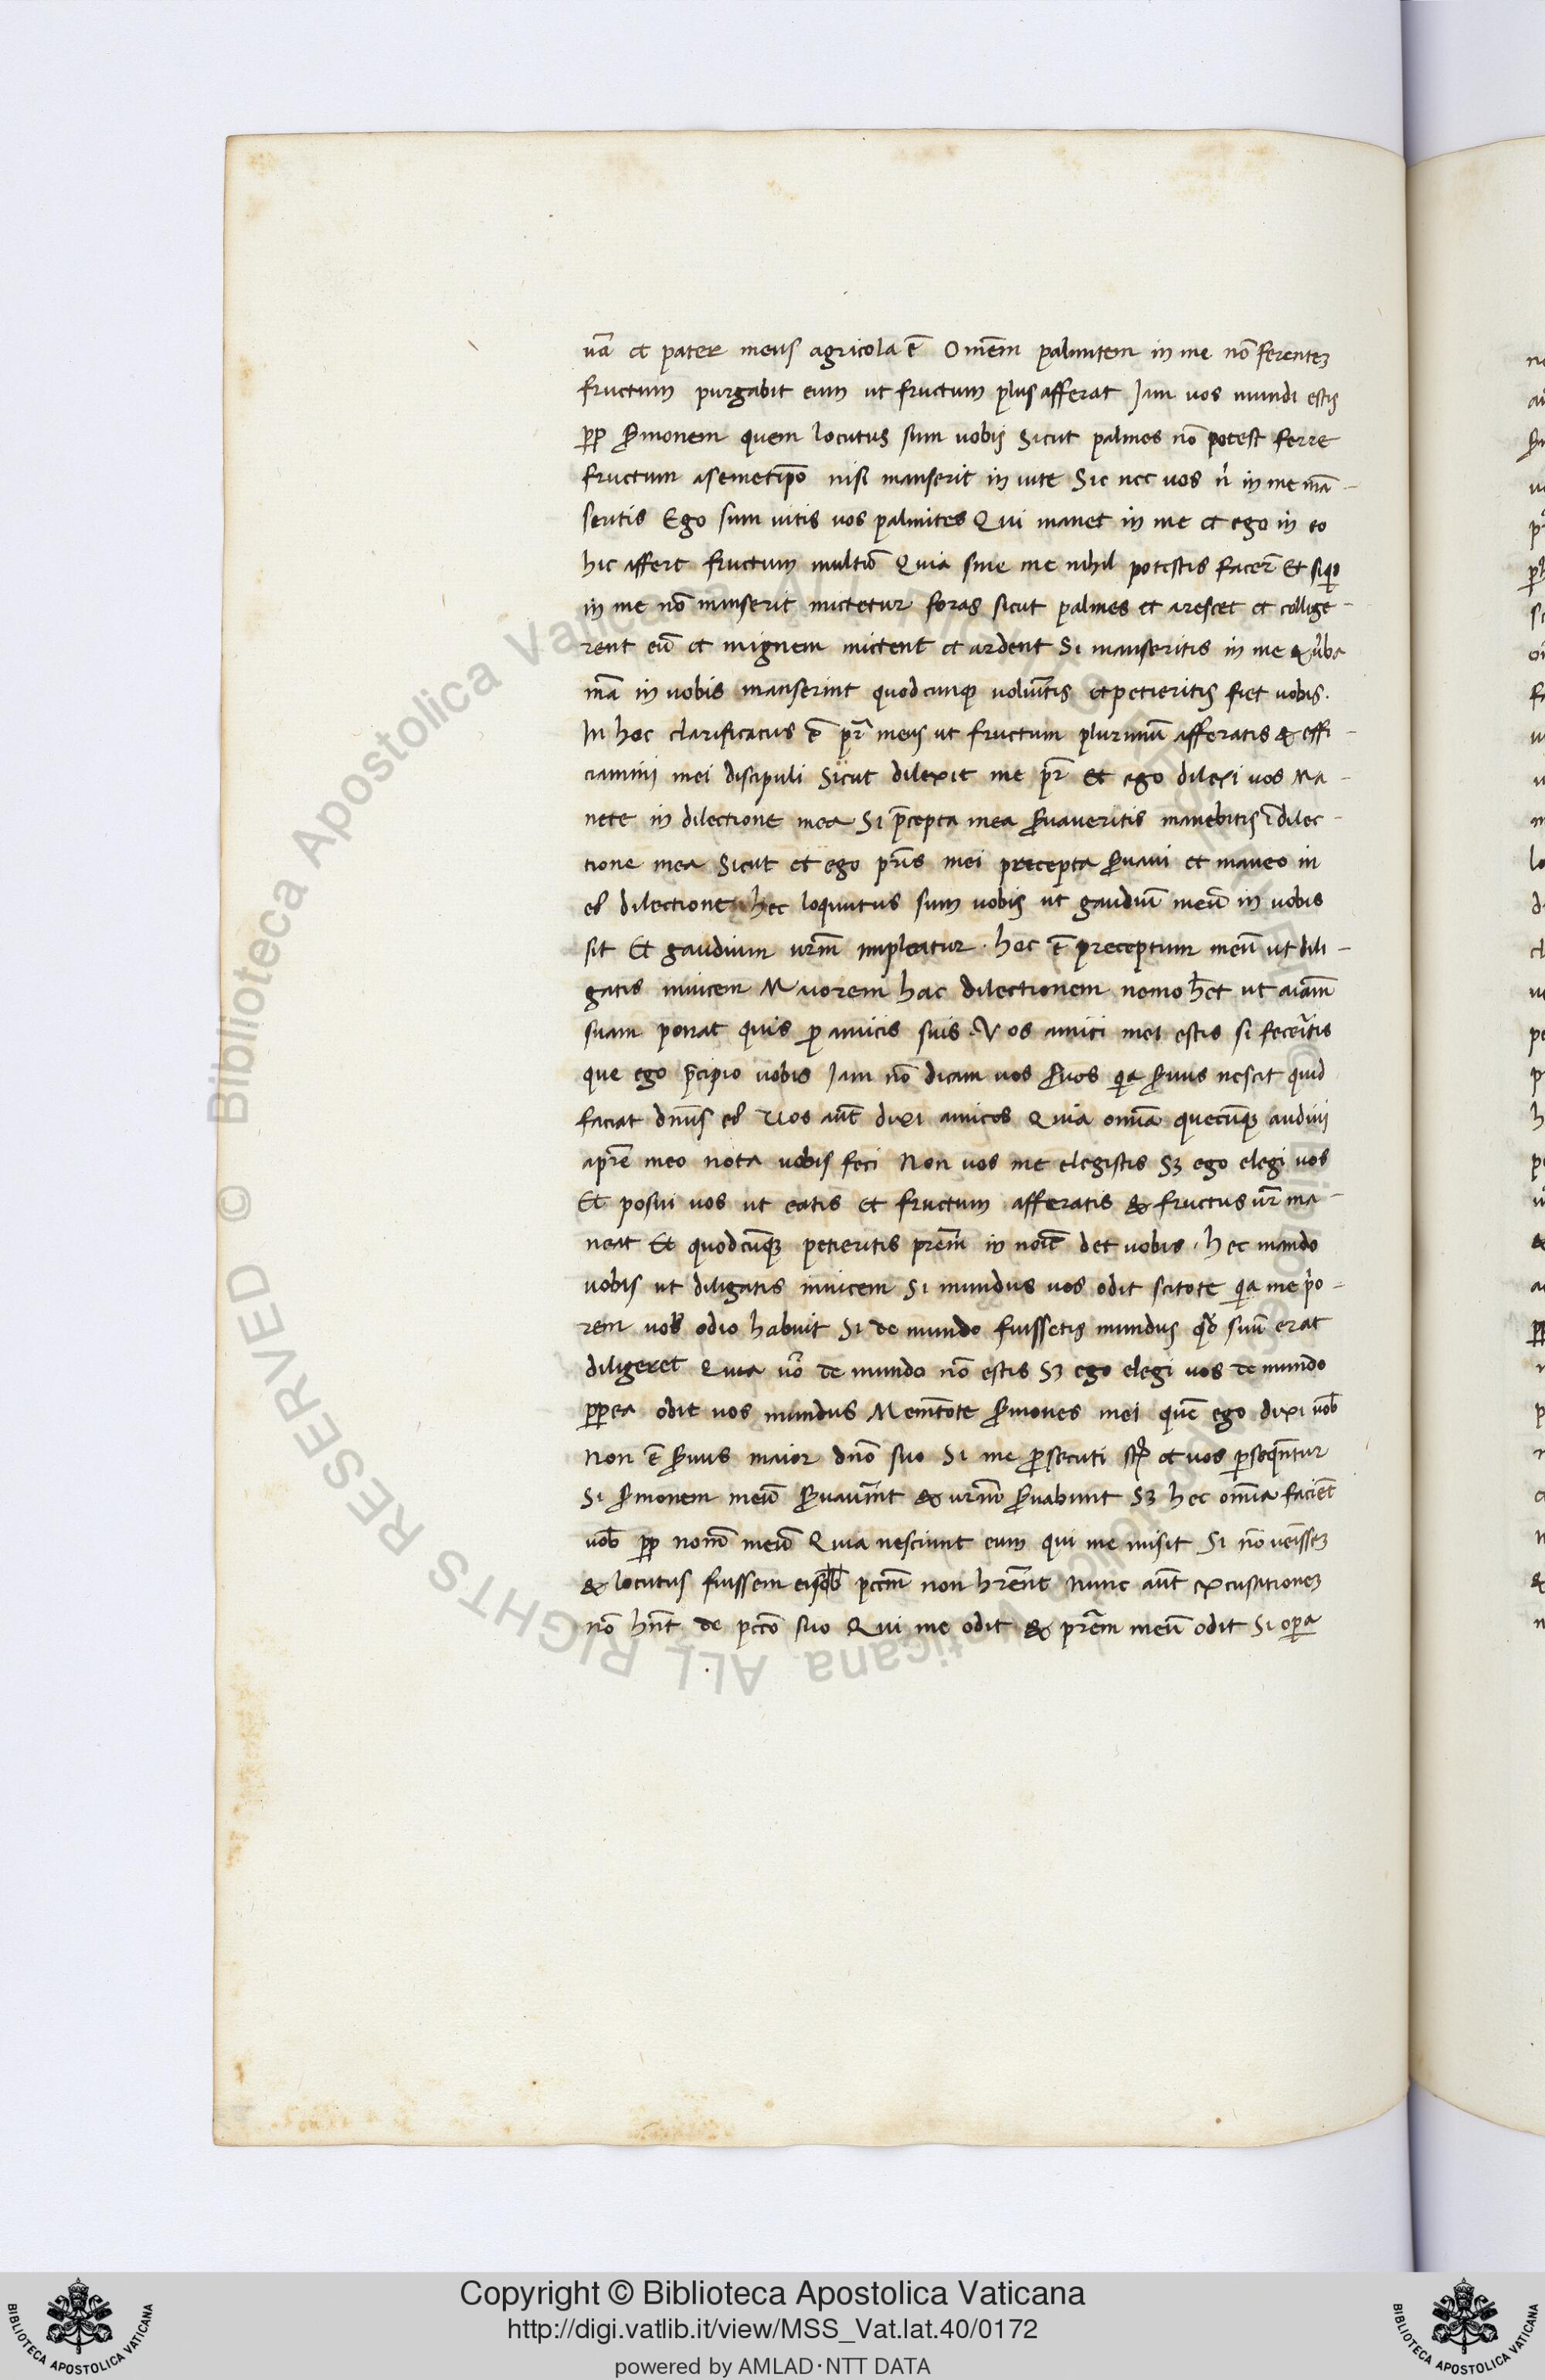 uā et pater meus agricola ē Omēm palmitem in me nō ferentez
fructum purgabit eum ut fructum plus afferat Jam uos mundi estis
ꝓp ẜmonem quem locutus sum uobis Sicut palmes nō potest ferre
fructum asemetip̄o nisi manserit in uite Sic nec uos n̄ in me mā-
seritis Ego sum uitis uos palmites Qui manet in me et ego in eo
hic affert fructum multū Quia sine me nihil potestis facer̄ Et siq̄s
in me nō manserit mictetur foras sicut palmes et arescet et collige-
rent eū et inignem mictent et ardent Si manseritis in me & u̇ba
mā in uobis manserint quodcunqꝫ uoluītis et petieritis fiet uobis.
In hoc clarificatus ē pr̄ meus ut fructum plurimū afferatis & effi-
ciamini mei discipuli Sicut dilexit me pr̄ Et ego dilexi uos Ma-
nete in dilectione mea Si p̄cepta mea ẜuaueritis manebitis ī dilec-
tione mea Sicut et ego pr̄is mei precepta ẜuaui et maneo in
eꝰ dilectione hec loquutus sum uobis ut gaudiū meū in uobis
sit Et gaudium ur̄m impleatur. hoc ē preceptum meū ut dili-
gatis inuicem Maiorem hac dilectionem nemo h̄et ut aīam
suam ponat quis ꝓ amicis suis. Vos amici mei estis si feceītis
que ego p̄cipio uobis Jam nō dicam uos ẜuos qꝛa ẜuus nescit quid
faciat dn̄us eꝰ Uos aūt dixi amicos Quia omīa quecūqꝫ audiui
apr̄e meo nota uobis feci Non uos me elegistis Sꝫ ego elegi uos
Et posui uos ut eatis Et fructum afferatis & fructus ur̄ ma-
neat Et quodcūqꝫ petieritis pr̄em in noīe det uobis. hec mando
uobis ut diligatis inuicem Si mundus uos odit scitote qꝛa me p̄o-
rem uob̄ odio habuit Si de mundo fuissetis mundus qđ suū erat
diligeret Quia ūo de mundo nō estis Sꝫ ego elegi uos de mundo
ꝓpea odit uos mundus Memētote ẜmones mei quē ego dixi uob̄
Non ē ẜuus maior dn̄o suo Si me ꝑsecuti st̄ et uos ꝑseqn̄tur
Si ẜmonem meū ẜuauer̄nt & ur̄m ẜuabunt Sꝫ hec omīa faciēt
uob̄ ꝓp nom̄ meū Quia nesciunt eum qui me misit Si nō ueīssez
& locutus fuissem eis pccm̄ non hr̄ent Nunc aūt excusationez
nō hn̄t de pccō suo Qui me odit & pr̄em meū odit Si oꝑa
© Biblioteca Apostolica Vaticana ALL RIGHTS RESERVED
Copyright © Biblioteca Apostolica Vaticana
http://digi.vatlib.it/view/MSS_Vat.lat.40/0172
powered by AMLAD·NTT DATA
BIBLIOTECA APOSTOLICA VATICANA
BIBLIOTECA APOSTOLICA VATICANA